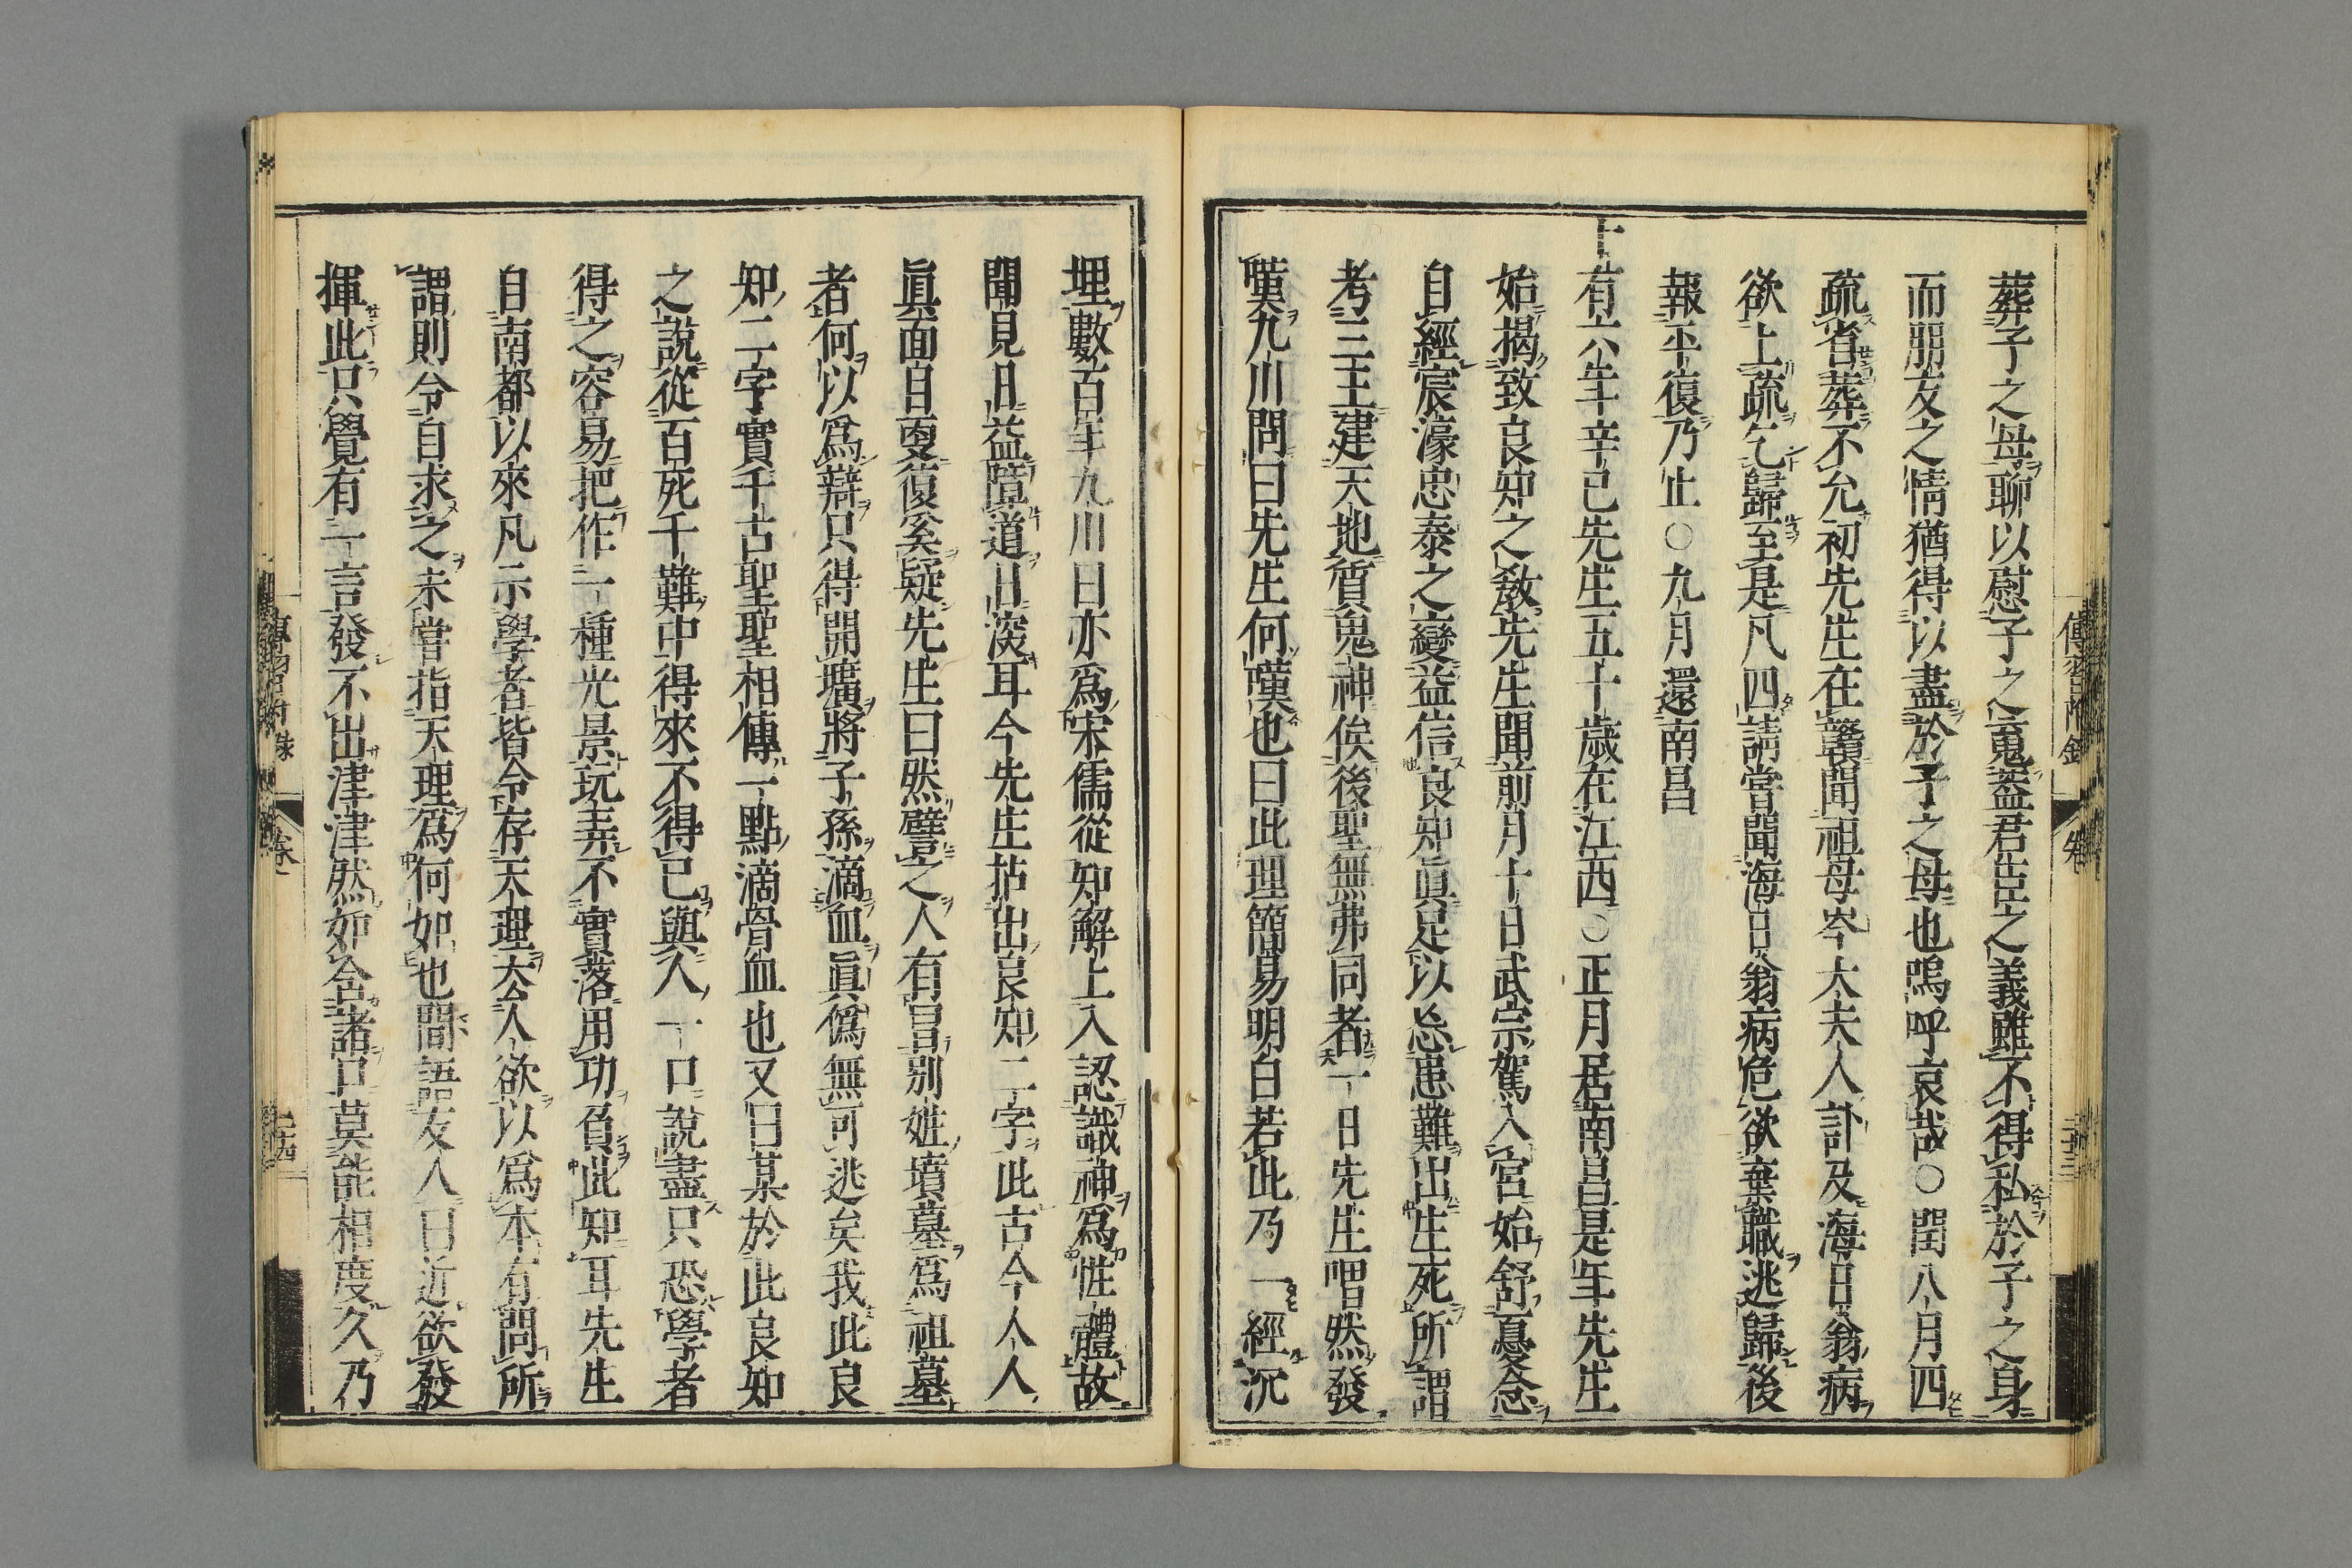 葬子之母聊以慰子之䰟葢君臣之義雖不得私於子之身
而朋友之情猶得以盡於子之母也嗚呼哀哉○閏八月四
疏省葬不允初先生在贛聞祖母岑太夫人訃及海日翁病
欲上疏乞歸至是凡四請嘗聞海日翁病危欲棄職逃歸後
報平復乃止○九月還南昌
十有六年辛巳先生五十歲在江西○正月居南昌是年先生
始揭致良知之教先生聞前月十日武宗駕入宮始舒憂念
自經宸濠忠泰之變益信良知眞足以忘患難出生死所謂
考三王建天地質鬼神俟後聖無弗同者一日先生喟然發
嘆九川問曰先生何嘆也曰此理簡易明白若此乃一經沉
埋數百年九川曰亦爲宋儒從知解上入認識神爲性體故
聞見日益障道日深耳今先生拈出良知二字此古今人人
眞面目更復奚疑先生曰然譬之人有冒别姓墳墓爲祖墓
者何以爲辯只得開壙將子孫滴血眞僞無可逃矣我此良
知二字實千古聖聖相傳一點滴骨血也又曰某於此良知
之說從百死千難中得來不得已與人一口說盡只恐學者
得之容易把作一種光景玩弄不實落用功負此知耳先生
自南都以來凡示學者皆令存天理去人欲以爲本有問所
謂則令自求之未嘗指天理爲何如也間語友人曰近欲發
揮此只覺有一言發不出津津然如含諸口莫能相度久乃